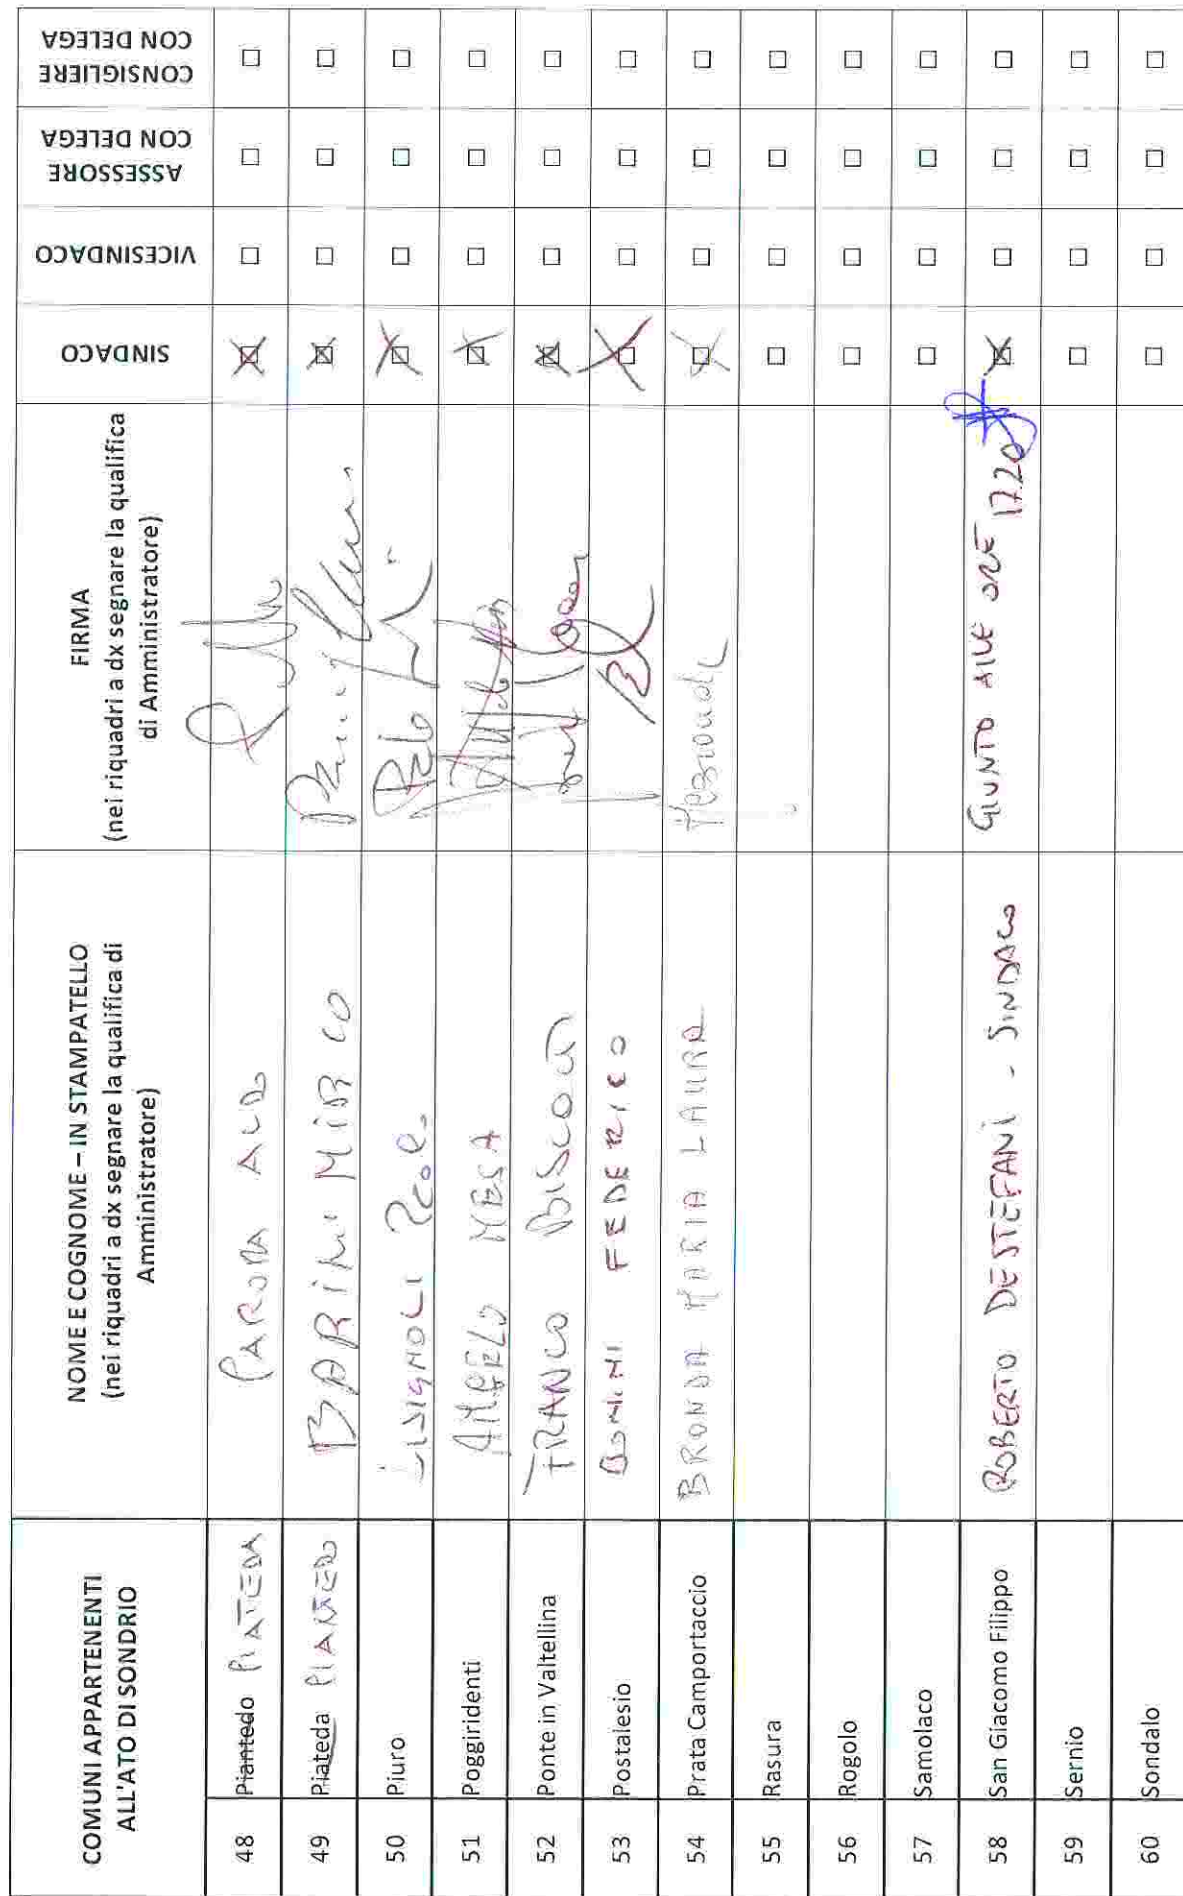 COMUNI APPARTENENTI
ALL'ATO DI SONDRIO
NOME E COGNOME – IN STAMPATELLO
(nei riquadri a dx segnare la qualifica di
Amministratore)
FIRMA
(nei riquadri a dx segnare la qualifica
di Amministratore)
SINDACO
VICESINDACO
ASSESSORE
CON DELEGA
CONSIGLIERE
CON DELEGA
48 Piantedo PIATEDA PARORA ALDO
49 Piateda PIANTEDO BARINI MIRCO
50 Piuro Paolo
51 Poggiridenti ANGELO MESA
52 Ponte in Valtellina FRANCO BISCOTTI
53 Postalesio BONINI FEDERICO
54 Prata Camportaccio BRONDA MARIA LAURA
55 Rasura
56 Rogolo
57 Samolaco
58 San Giacomo Filippo ROBERTO DE STEFANI - SINDACO GIUNTO ALLE ORE 17.20
59 Sernio
60 Sondalo